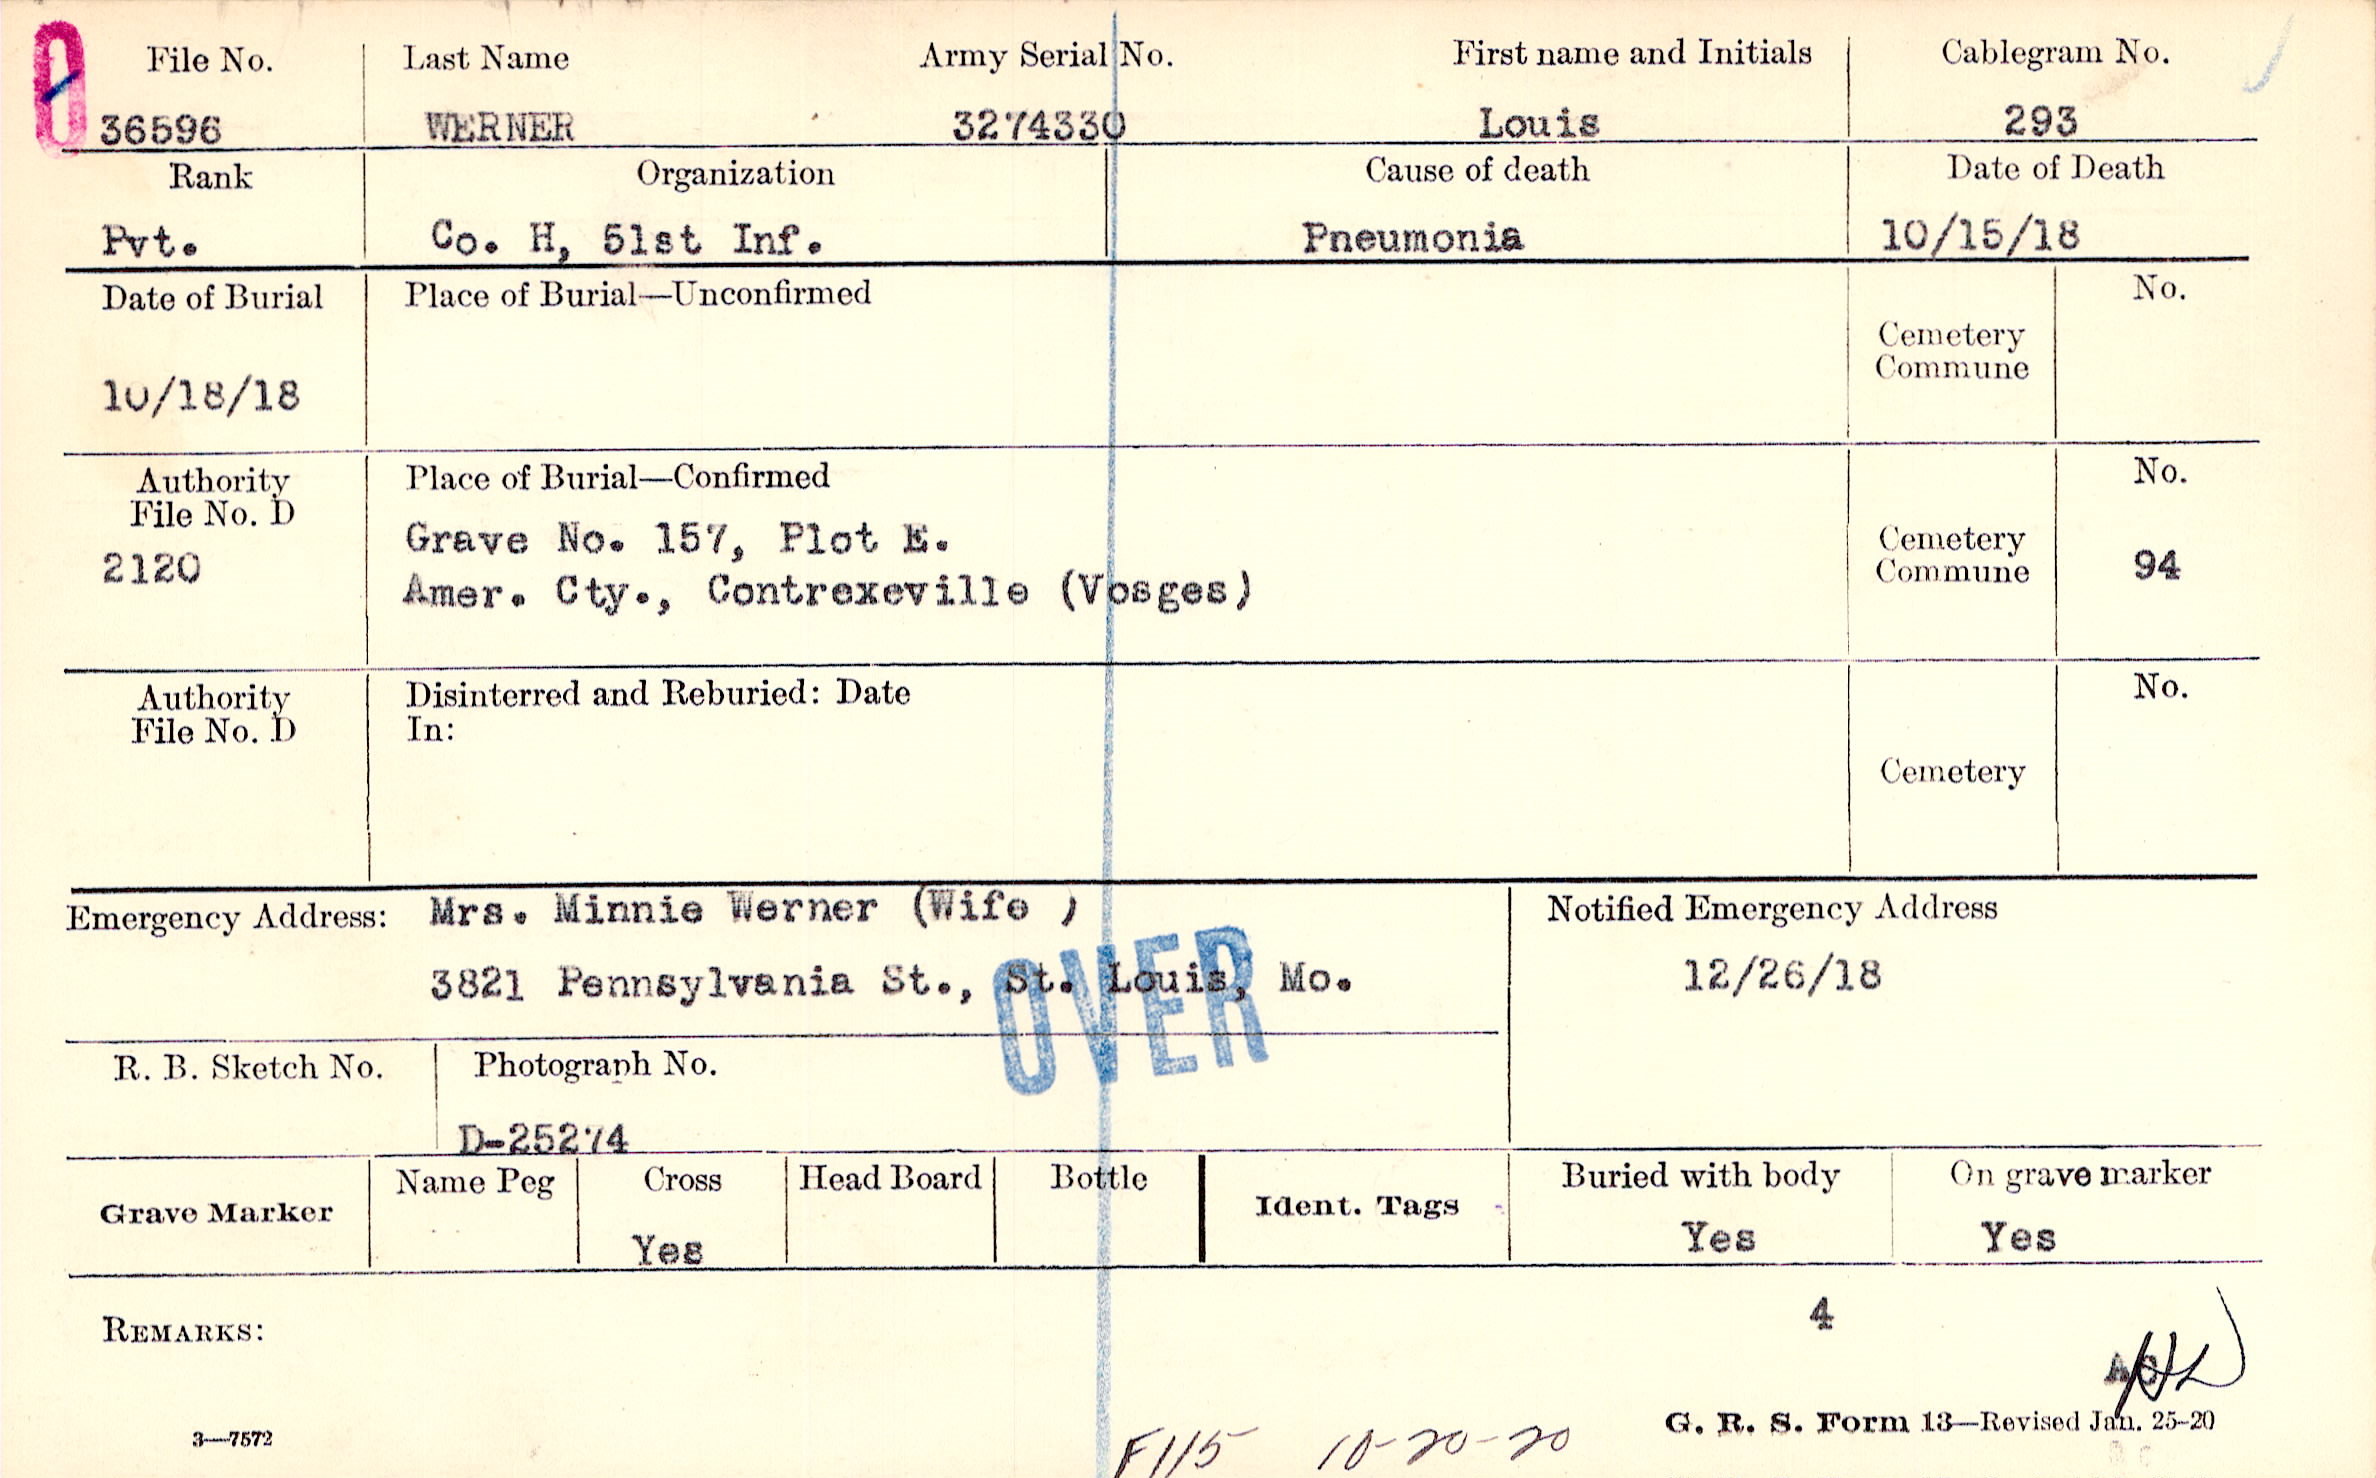 File No. Last Name Army Serial No. First name and Initials Cablegram No.
36596 WERNER 3274330 Louis 293
Rank Organization Cause of death Date of Death
Pvt. Co. H, 51st Inf. Pneumonia 10/15/18
Date of Burial Place of Burial—Unconfirmed No.
Cemetery
Commune
10/18/18
Authority Place of Burial—Confirmed No.
File No. D
Grave No. 157, Plot E. Cemetery
2120 Amer. Cty., Contrexeville (Vosges) Commune 94
Authority Disinterred and Reburied: Date No.
File No. D In:
Cemetery
Emergency Address: Mrs. Minnie Werner (Wife ) Notified Emergency Address
3821 Pennsylvania St., St. Louis, Mo. 12/26/18
OVER
R. B. Sketch No. Photograph No.
D-25274
Grave Marker Name Peg Cross Head Board Bottle Ident. Tags Buried with body On grave marker
Yes Yes Yes
4
REMARKS:
G. R. S. Form 13—Revised Jan. 25-20
3—7572
F115 10-20-20